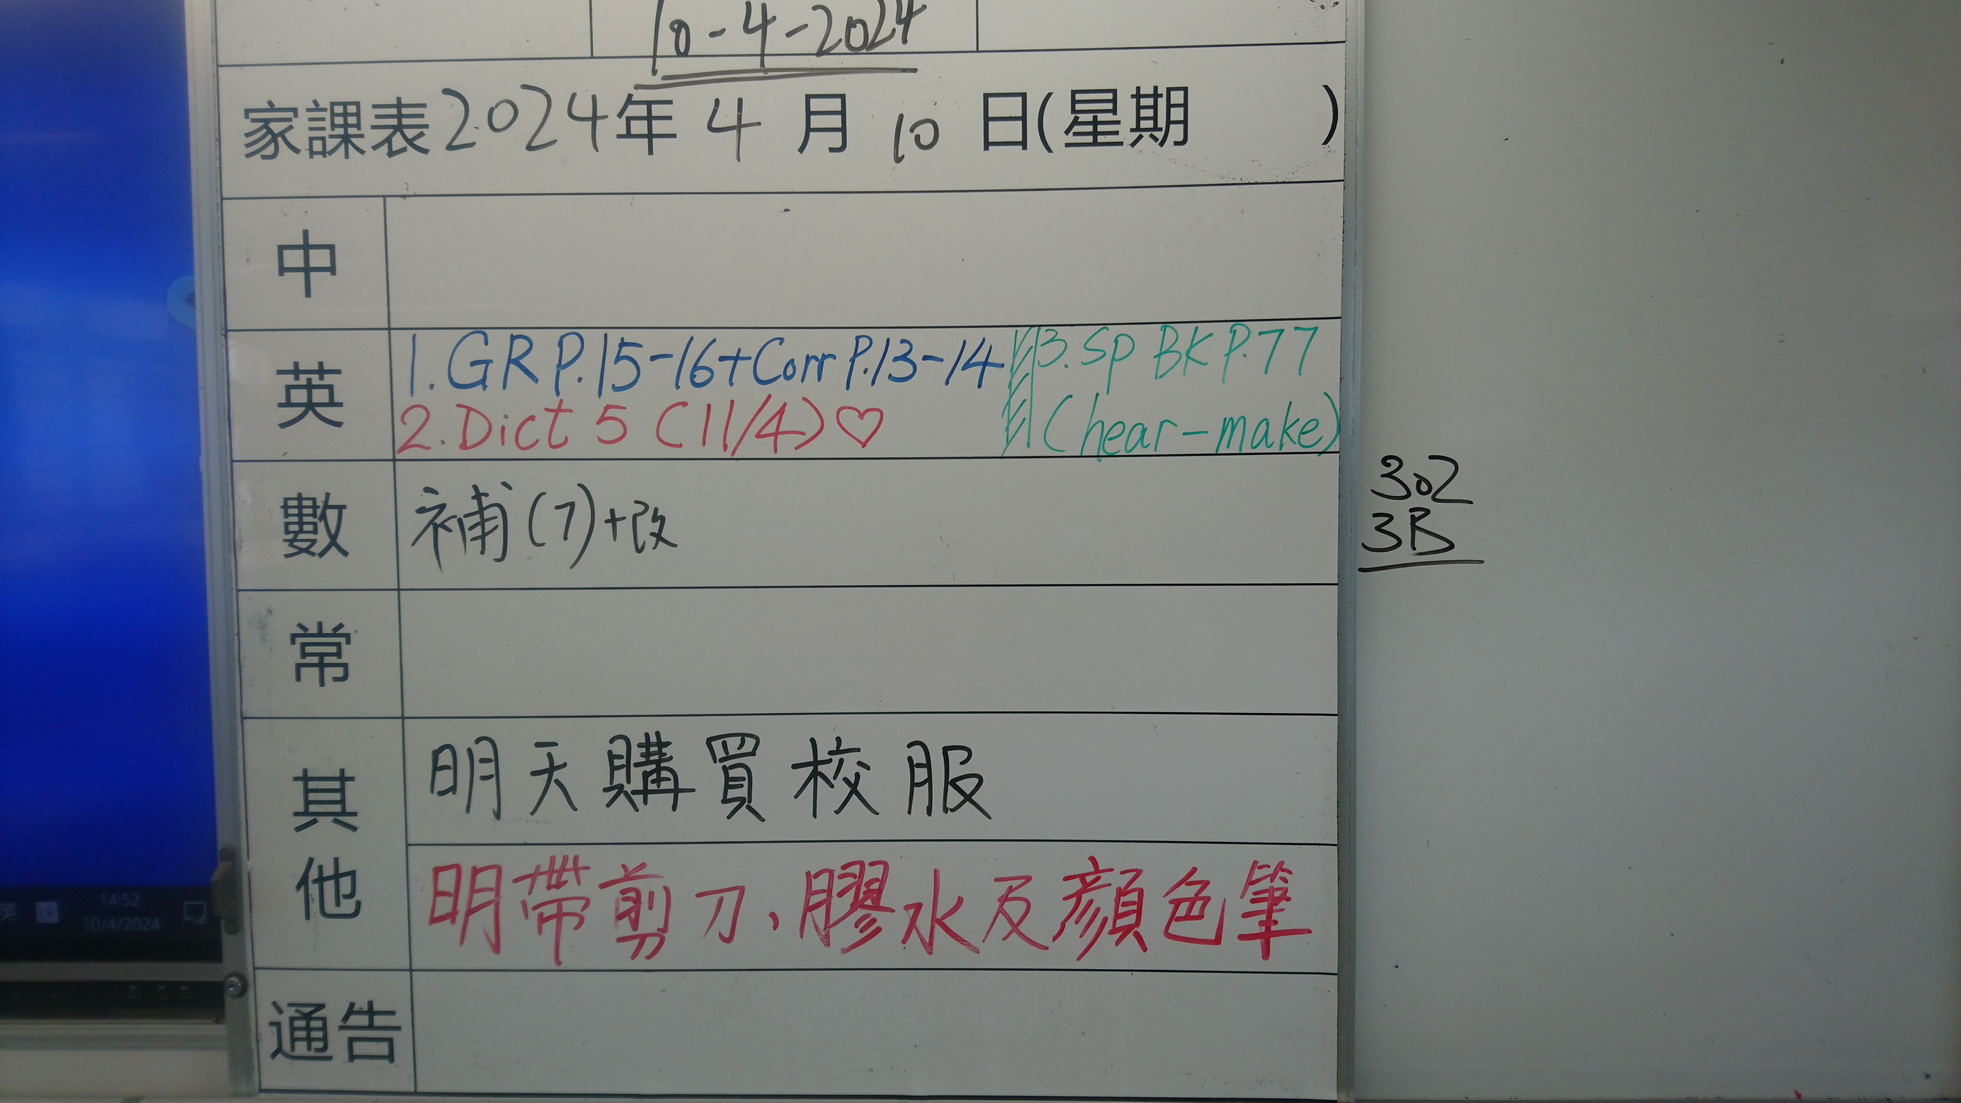 10-4-2024
家課表2024年 4 月 10 日(星期 )
中
英
1.GR P.15-16+Corr P.13-14
2.Dict 5 (11/4)♡
3.Sp BK P.77
(hear-make)
數
補(7)+改
302
3B
常
其他
明天購買校服
明帶剪刀、膠水及顏色筆
通告
英
14:52
10/4/2024